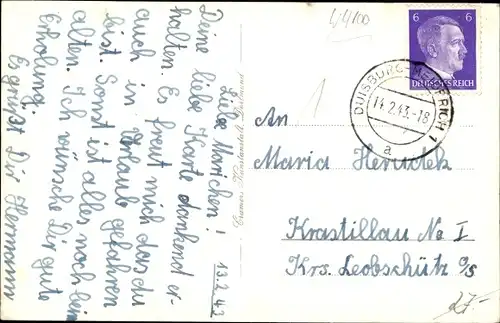 13.2.43
Liebe Marichen!
Deine liebe Karte dankend er-
halten. Es freut mich das du
auch in Urlaub gefahren
bist. Sonst ist alles noch beim
alten. Ich wünsche Dir gute
Erholung.
Es grüßt Dir Hermann
Cramers Kunstanstalt, Dortmund
4/4100
6 6
DEUTSCHES REICH
DUISBURG-MEIDERICH 1
14.2.43.-18
a
1
An
Maria Herudek
Krastillau No I
Krs. Leobschütz O/S
27.-